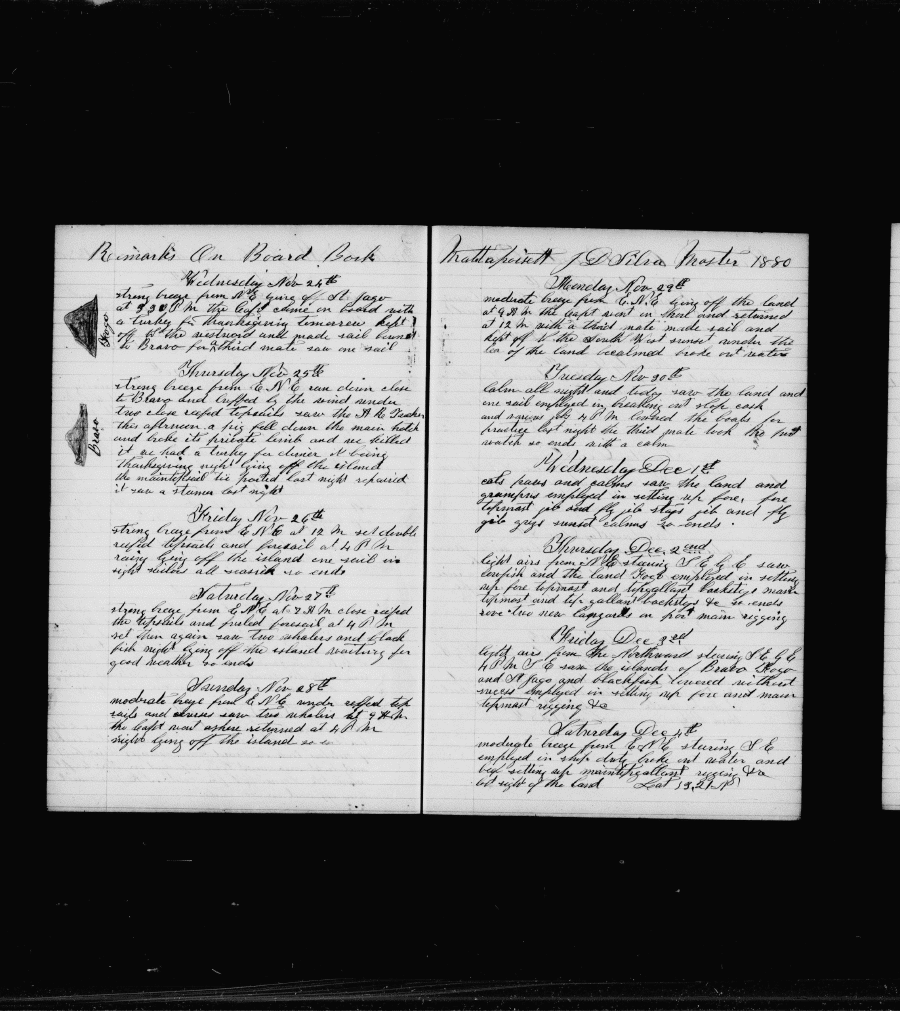 Remarks On Board Bark
Wednesday Nov 24th
strong breeze from N E lying off St Jago
at 3 30 P M the Capt came on board with
a turkey for thanksgiving tomorrow kept
off to the westward and made sail bound
to Bravo for third mate saw one sail
Fogo
Thursday Nov 25th
strong breeze from E N E ran down close
to Bravo and luffed by the wind under
two close reefed topsails saw the A R Tucker
this afternoon a pig fell down the main hatch
and broke its private limb and we killed
it we had a turkey for dinner it being
thanksgiving night lying off the island
the maintopsail tie parted last night repaired
it saw a stamer last night
Bravo
Friday Nov 26th
strong breeze from E N E at 12 M set double
reefed topsails and foresail at 4 P M
lying off the island one sail in
sight sailors all seasick so ends
Saturday Nov 27th
strong breeze from E N E at 7 A M close reefed
the topsails and furled foresail at 4 P M
set them again saw two whalers and black
fish night lying off the island waiting for
good weather so ends
Sunday Nov 28th
moderate breeze from E N E under reefed top
sails and courses saw two whalers at 9 A M
the Capt went ashore returned at 4 P M
night lying off the island so
Mattapoisett J D Silva Master 1880
Monday Nov 29th
moderate breeze from E N E lying off the land
at 9 A M the Capt went in there and returned
at 12 M with a third mate made sail and
kept off to the South West sunset under the
lee of the land becalmed broke out water
Tuesday Nov 30th
Calm all night and today saw the land and
one sail employed in breaking out slop cask
and 4 P M lowered the boats for
practice last night the third mate took the first
watch so ends with a calm
Wednesday Dec 1st
cats paws and calms saw the land and
grampus employed in setting up fore, fore
topmast jib and fly jib stays jib and fly
jib guys sunset calms so ends.
Thursday Dec 2end
light airs from N E staring S E & E saw
cowfish and the land Fogo employed in setting
up fore topmost and topgallant backstays main
topmost and top gallant backstays &c so ends
rove two new lanyards on port main rigging
Friday Dec 3rd
light airs from the Northward staring S E & E
4 P M S E saw the islands of Bravo Fogo
and St Jago and blackfish lowered without
success employed in setting up fore and main
topmost rigging &c
Saturday Dec 4th
moderate breeze from E N E staring S E
employed in ship duty broke out water and
setting up maintopgallant rigging &c
lost sight of the land Lat 13,21 N